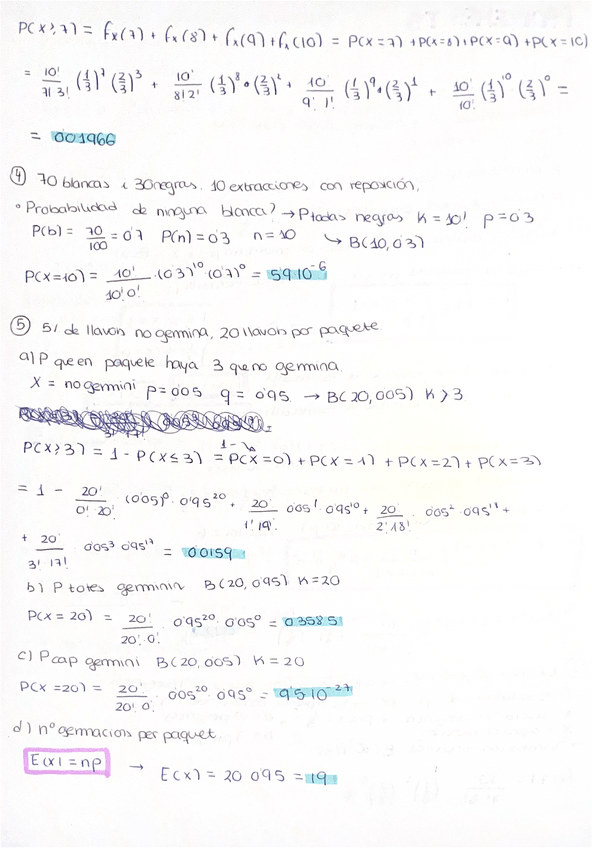 P(X⩾7) = fx(7) + fx(8) + fx(9) + fx(10) = P(X=7) + P(X=8) + P(X=9) + P(X=10)
= 10!/7!3! (1/3)^7 (2/3)^3 + 10!/8!2! (1/3)^8 · (2/3)^2 + 10!/9!1! (1/3)^9 · (2/3)^1 + 10!/10! (1/3)^10 (2/3)^0 =
= 0'01966
④ 70 blancas i 30 negras. 10 extracciones con reposición,
° Probabilidad de ninguna blanca? → P todas negras K = 10! p = 0'3
P(b) = 70/100 = 0'7 P(n) = 0'3 n = 10 ↳ B(10,0'3)
P(X=10) = 10!/10!0! · (0'3)^10 · (0'7)^0 = 5'9·10^-6
⑤ 5% de llavors no germina, 20 llavors por paquete
a) P que en paquete haya 3 que no germina.
X = no germini p = 0'05 q = 0'95 → B(20,0'05) K ⩾ 3
P(X⩾3) = 1 - P(X≤3) = 1 - P(X=0) + P(X=1) + P(X=2) + P(X=3)
= 1 - 20!/0!·20! · (0'05)^0 · 0'95^20 + 20!/1!19! 0'05^1 · 0'95^19 + 20!/2!18! · 0'05^2 · 0'95^18 +
+ 20!/3!·17! · 0'05^3 · 0'95^17 = 0'0159
b) P totes germinin B(20,0'95) K=20
P(X=20) = 20!/20!·0! · 0'95^20 · 0'05^0 = 0'3585
c) P cap germini B(20,0'05) K = 20
P(X=20) = 20!/20!0! · 0'05^20 · 0'95^0 = 9'5·10^-27
d) nº germacions per paquet
E(X) = np → E(X) = 20·0'95 = 19